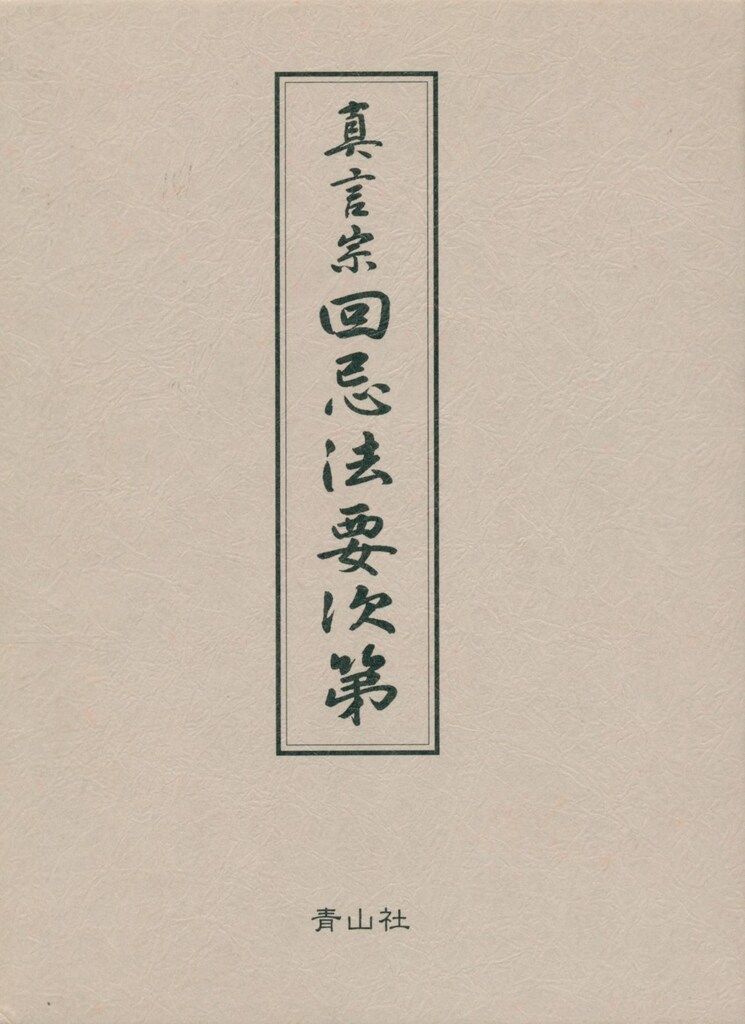 真言宗回忌法要次第
青山社